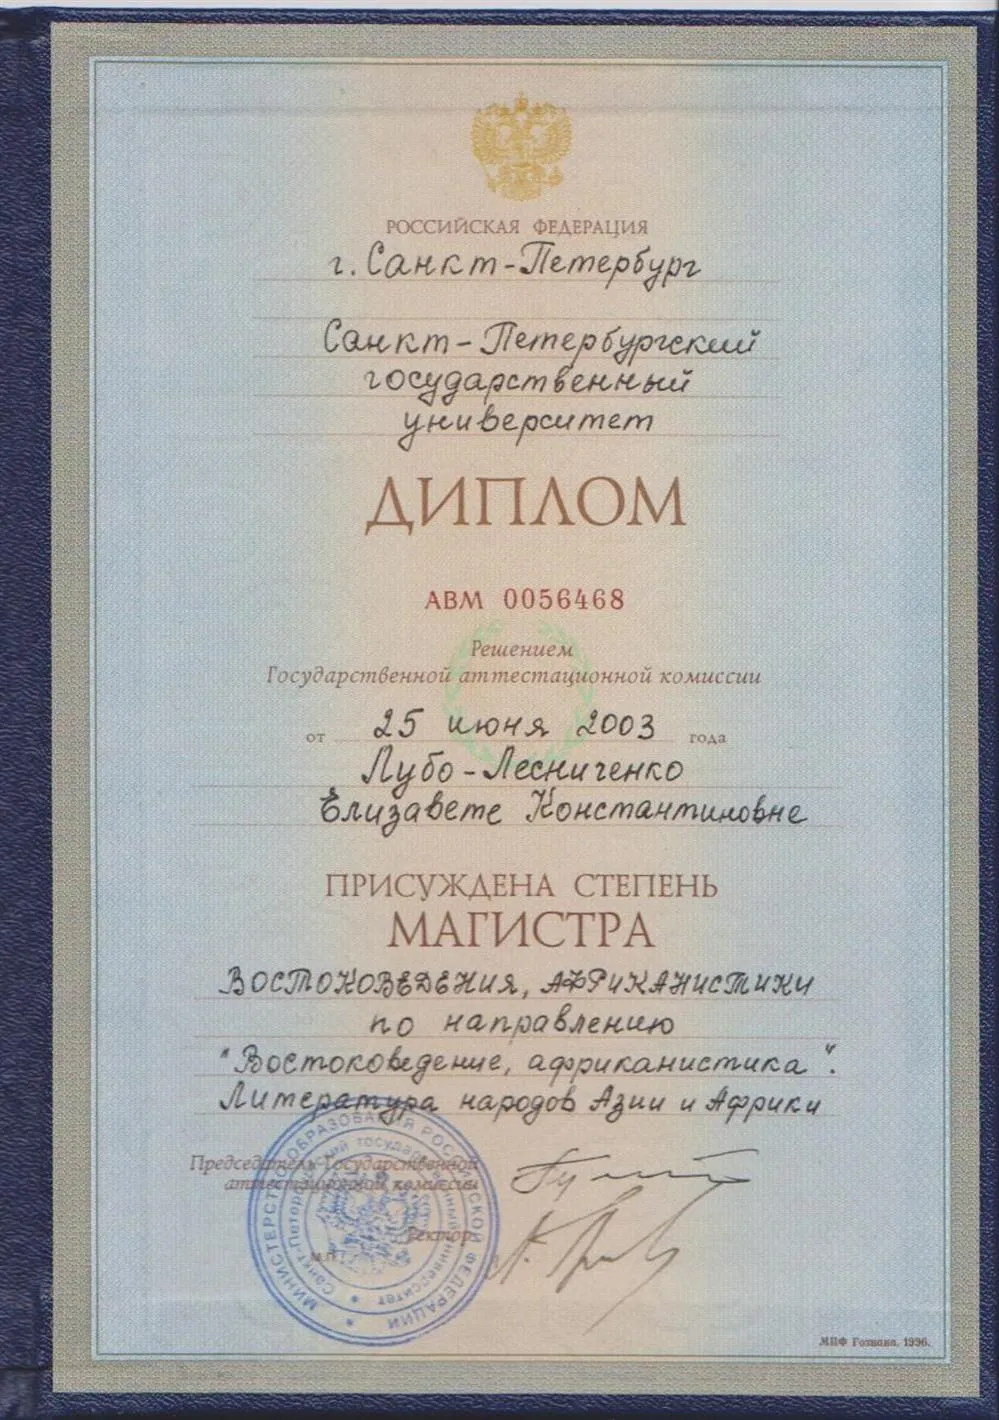 РОССИЙСКАЯ ФЕДЕРАЦИЯ
г. Санкт-Петербург
Санкт-Петербургский
государственный
университет
ДИПЛОМ
АВМ 0056468
Решением
Государственной аттестационной комиссии
от 25 июня 2003 года
Лубо-Лесниченко
Елизавете Константиновне
ПРИСУЖДЕНА СТЕПЕНЬ
МАГИСТРА
ВОСТОКОВЕДЕНИЯ, АФРИКАНИСТИКИ
по направлению
"Востоковедение, африканистика".
Литература народов Азии и Африки
Председатель Государственной
аттестационной комиссии
Ректор
М.П.
МИНИСТЕРСТВО ОБРАЗОВАНИЯ РОССИЙСКОЙ ФЕДЕРАЦИИ
Санкт-Петербургский государственный университет
МПФ Гознака. 1996.